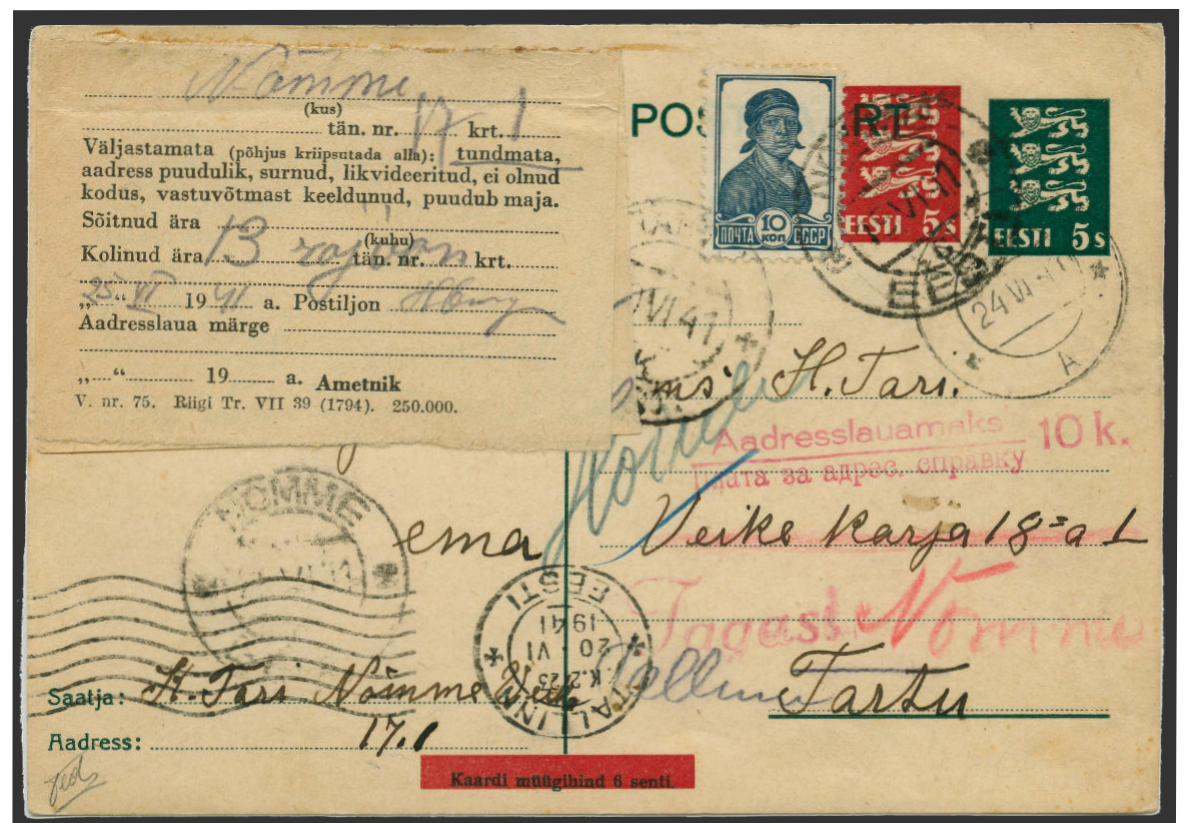 Nõmme
(kus)
tän. nr. 17 krt. 1
Väljastamata (põhjus kriipsutada alla): tundmata,
aadress puudulik, surnud, likvideeritud, ei olnud
kodus, vastuvõtmast keeldunud, puudub maja.
Sõitnud ära
(kuhu)
Kolinud ära 13 tän. nr. krt.
„ 25 “ VI 19 41 a. Postiljon
Aadresslaua märge
„ “ 19 a. Ametnik
V. nr. 75. Riigi Tr. VII 39 (1794). 250.000.
POS RT
10
КОП
ПОЧТА СССР
EESTI 5s
EESTI 5s
VI 41
24 VI
A
VI 41
H. Tari.
Aadresslauamaks 10 k.
Плата за адрес. справку
ema
Veike Karja 18=a 1
Tagasi Nõmme
Tallinn
Tartu
NÕMME
EESTI
1941
20 VI
K. 2-23
TALLINN
Saatja: H. Tari Nõmme
Aadress: 17.1
Kaardi müügihind 6 senti.